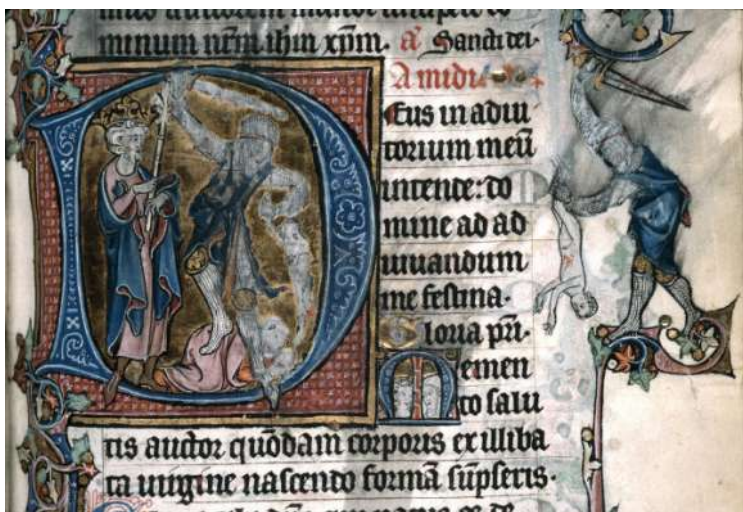 minum nr̄m ihm xp̄m. a᷑ Sancti dei·
A midi·
Eus in adiu
torium meū
intende: do
mine ad ad
iuuandum
me festina·
Gloria pr̄i·
Memen
to salu
tis auctor quōdam corporis ex illiba
ta uirgine nascendo formā sūpseris·